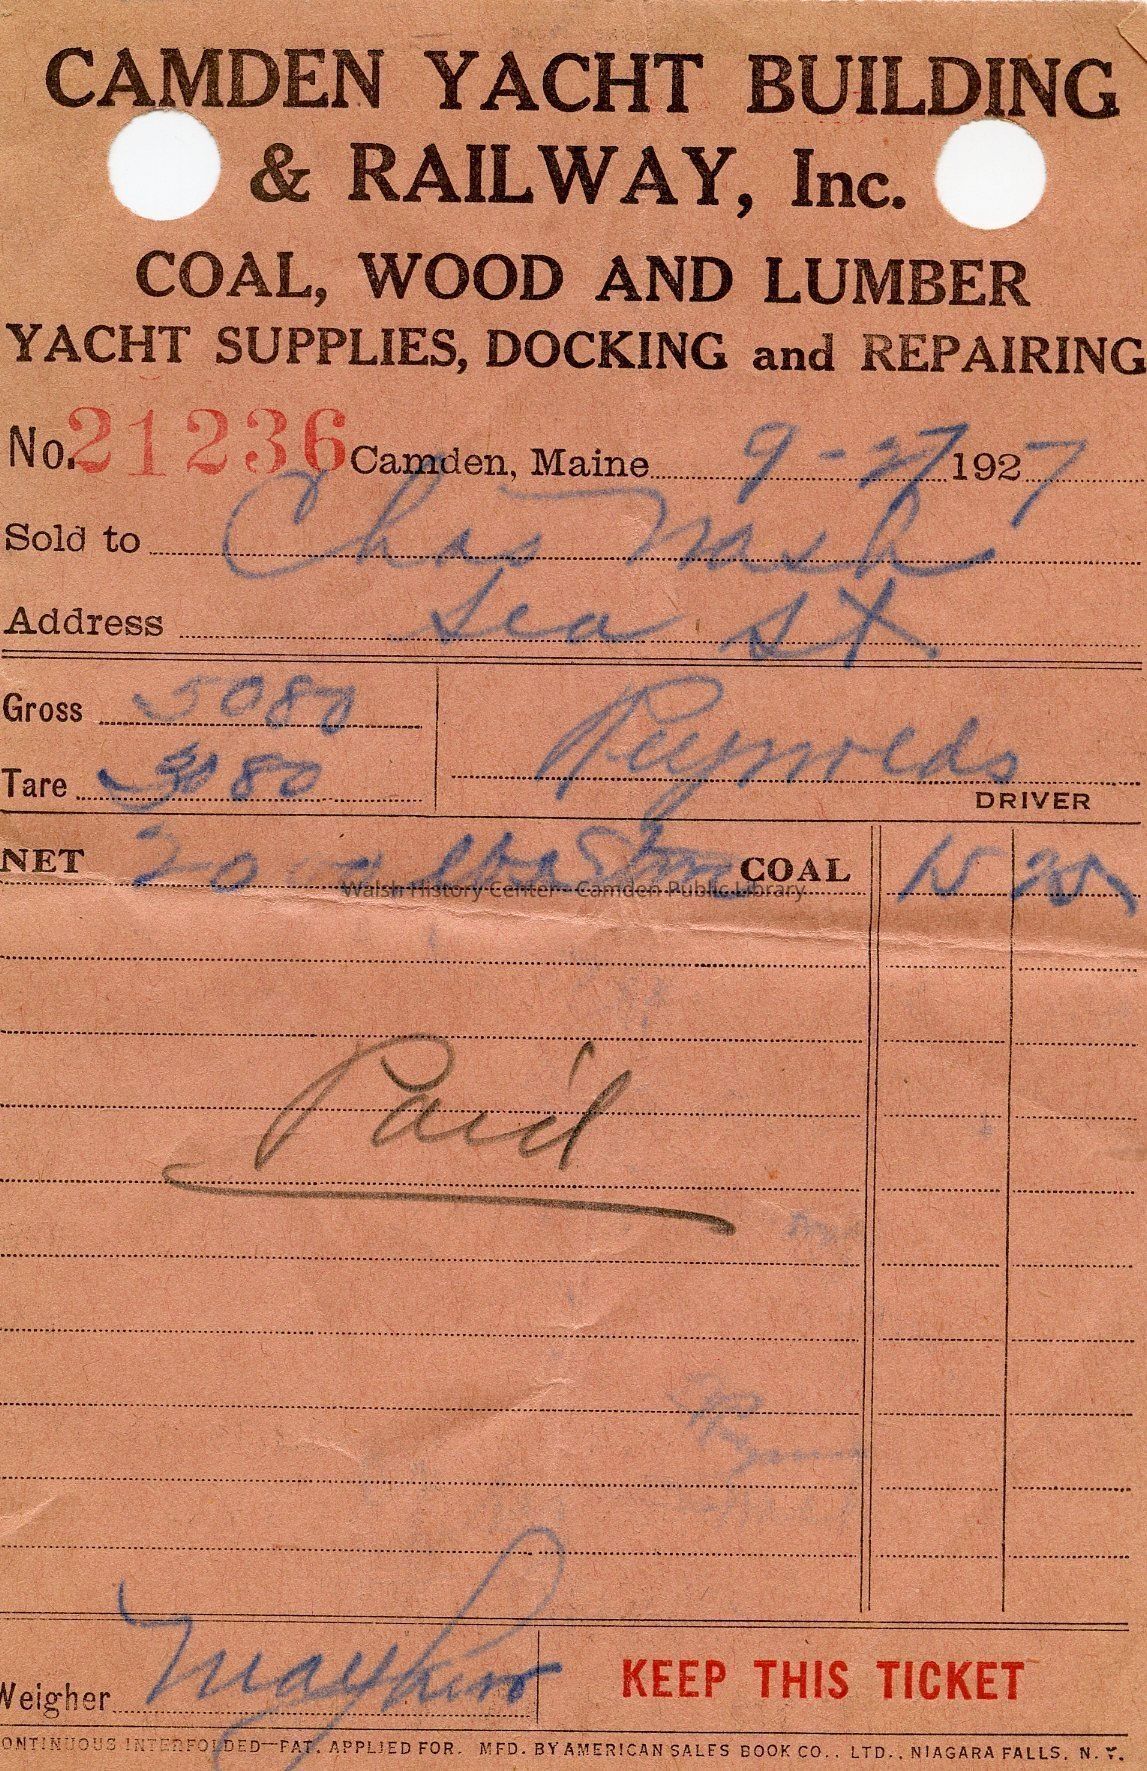 CAMDEN YACHT BUILDING
& RAILWAY, Inc.
COAL, WOOD AND LUMBER
YACHT SUPPLIES, DOCKING and REPAIRING
No. 21236 Camden, Maine 9-27 1927
Sold to Chas Nash
Address Sea St
Gross 5080
Tare 3080 Reynolds
DRIVER
NET 20 COAL 15 25
Walsh History Center - Camden Public Library
Paid
Weigher Mayhew KEEP THIS TICKET
ONTINUOUS INTERFOLDED—PAT. APPLIED FOR. MFD. BY AMERICAN SALES BOOK CO., LTD., NIAGARA FALLS, N. Y.